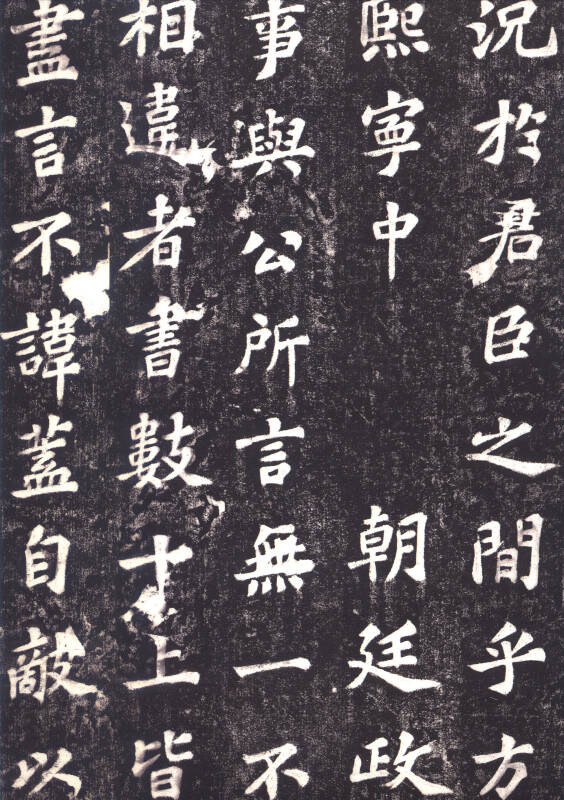 況於君臣之間乎方
熙寧中朝廷政
事與公所言無一不
相違者書數十上皆
盡言不諱蓋自敵以